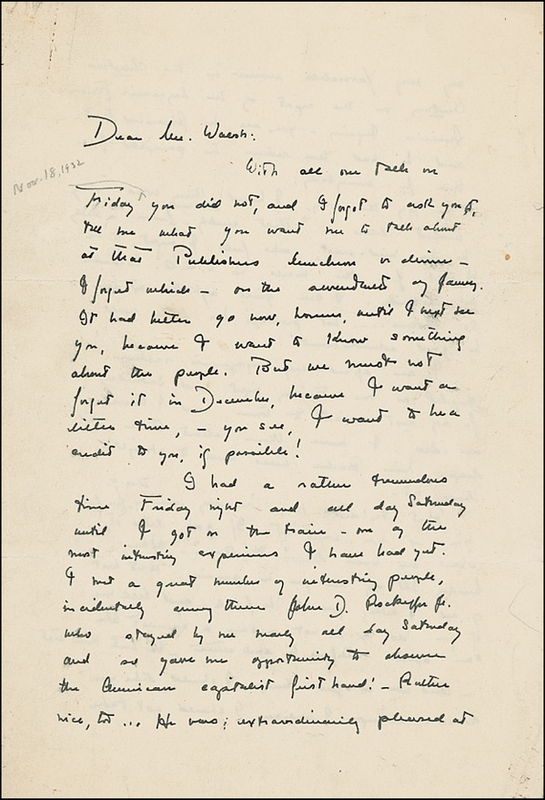 Dear Mr. Walsh:
Nov. 18, 1932
With all our talk on
Friday you did not, and I forgot to ask you to,
tell me what you want me to talk about
at that Publishers luncheon or dinner –
I forget which – on the seventeenth of January.
It had better go now, however, until I next see
you, because I want to know something
about the people. But we must not
forget it in December, because I want a
little time, – you see, I want to be a
credit to you, if possible!
I had a rather tremendous
time Friday night and all day Saturday
until I got on the train – one of the
most interesting experiences I have had yet.
I met a great number of interesting people,
incidentally among them John D. Rockefeller Jr.
who stayed by me nearly all day Saturday
and so gave me opportunity to observe
the American capitalist first hand! – Rather
nice, too ... He was; extraordinarily pleased at